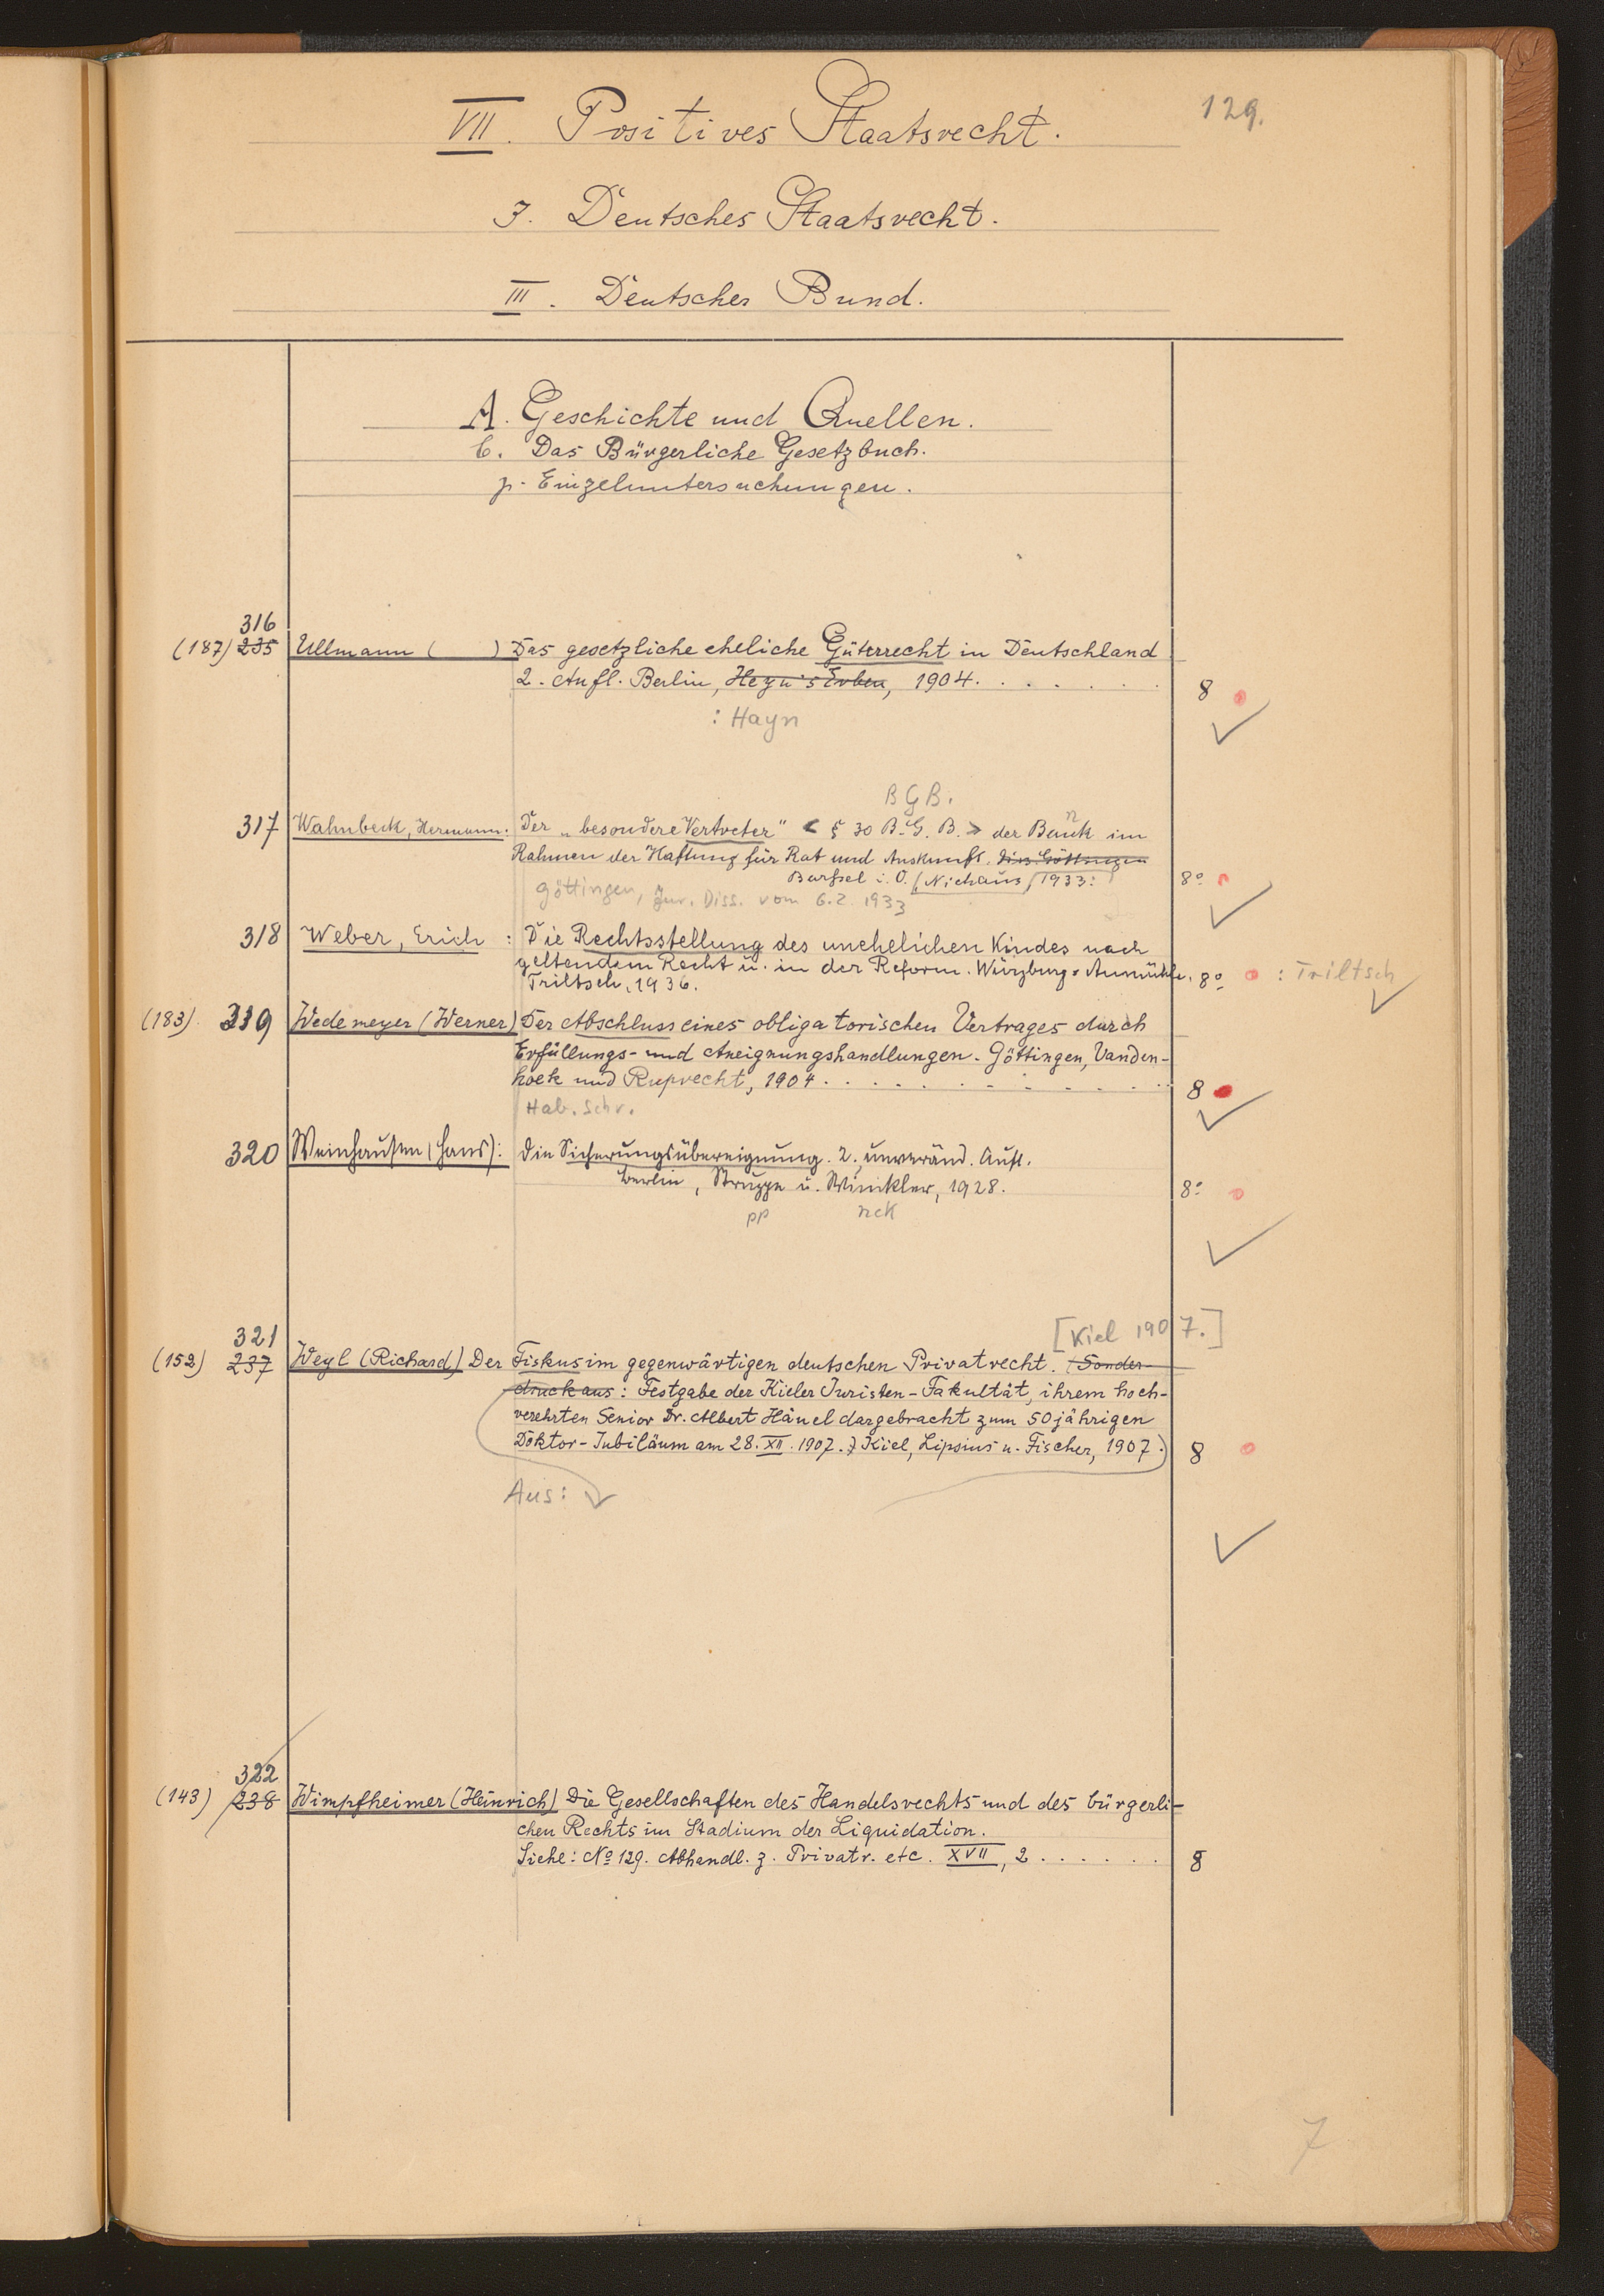 129.
VII. Positives Staatsrecht.
J. Deutsches Staatsrecht.
III. Deutscher Bund.
A. Geschichte und Quellen.
b. Das Bürgerliche Gesetzbuch.
Einzeluntersuchungen.
316
(187) 235 Ullmann ( ) Das gesetzliche eheliche Güterrecht in Deutschland
2. Aufl. Berlin, Heyn's Erben, 1904. 8
: Hayn
BGB.
317 Wahnbeck, Hermann: Der „besondere Vertreter" < § 30 B.G.B. > der Bank im
n
Rahmen der Haftung für Rat und Auskunft. Diss. Göttingen
Barssel i. O. (Niehaus) 1933. 8°
Göttingen, Jur. Diss. vom 6.2.1933
318 Weber, Erich : Die Rechtsstellung des unehelichen Kindes nach
geltendem Recht u. in der Reform. Würzburg-Aumühle, 8° : Triltsch
Triltsch, 1936.
(183) 319 Wedemeyer (Werner) Der Abschluss eines obligatorischen Vertrages durch
Erfüllungs- und Aneignungshandlungen. Göttingen, Vanden-
hoek und Ruprecht, 1904. 8
Hab. Schr.
320 Weinhausen (Hans): Die Sicherungsübereignung. 2., unveränd. Aufl.
Berlin, Struppe u. Winkler, 1928. 8°
pp nck
[Kiel 1907.]
321
(152) 237 Weyl (Richard) Der Fiskus im gegenwärtigen deutschen Privatrecht. (Sonder-
druck aus: Festgabe der Kieler Juristen-Fakultät, ihrem hoch-
verehrten Senior Dr. Albert Hänel dargebracht zum 50jährigen
Doktor-Jubiläum am 28. XII. 1907.) Kiel, Lipsius u. Fischer, 1907.) 8
Aus:
322
(143) 238 Wimpfheimer (Heinrich) Die Gesellschaften des Handelsrechts und des bürgerli-
chen Rechts im Stadium der Liquidation.
Siehe: No 129. Abhandl. z. Privatr. etc. XVII, 2 8
7